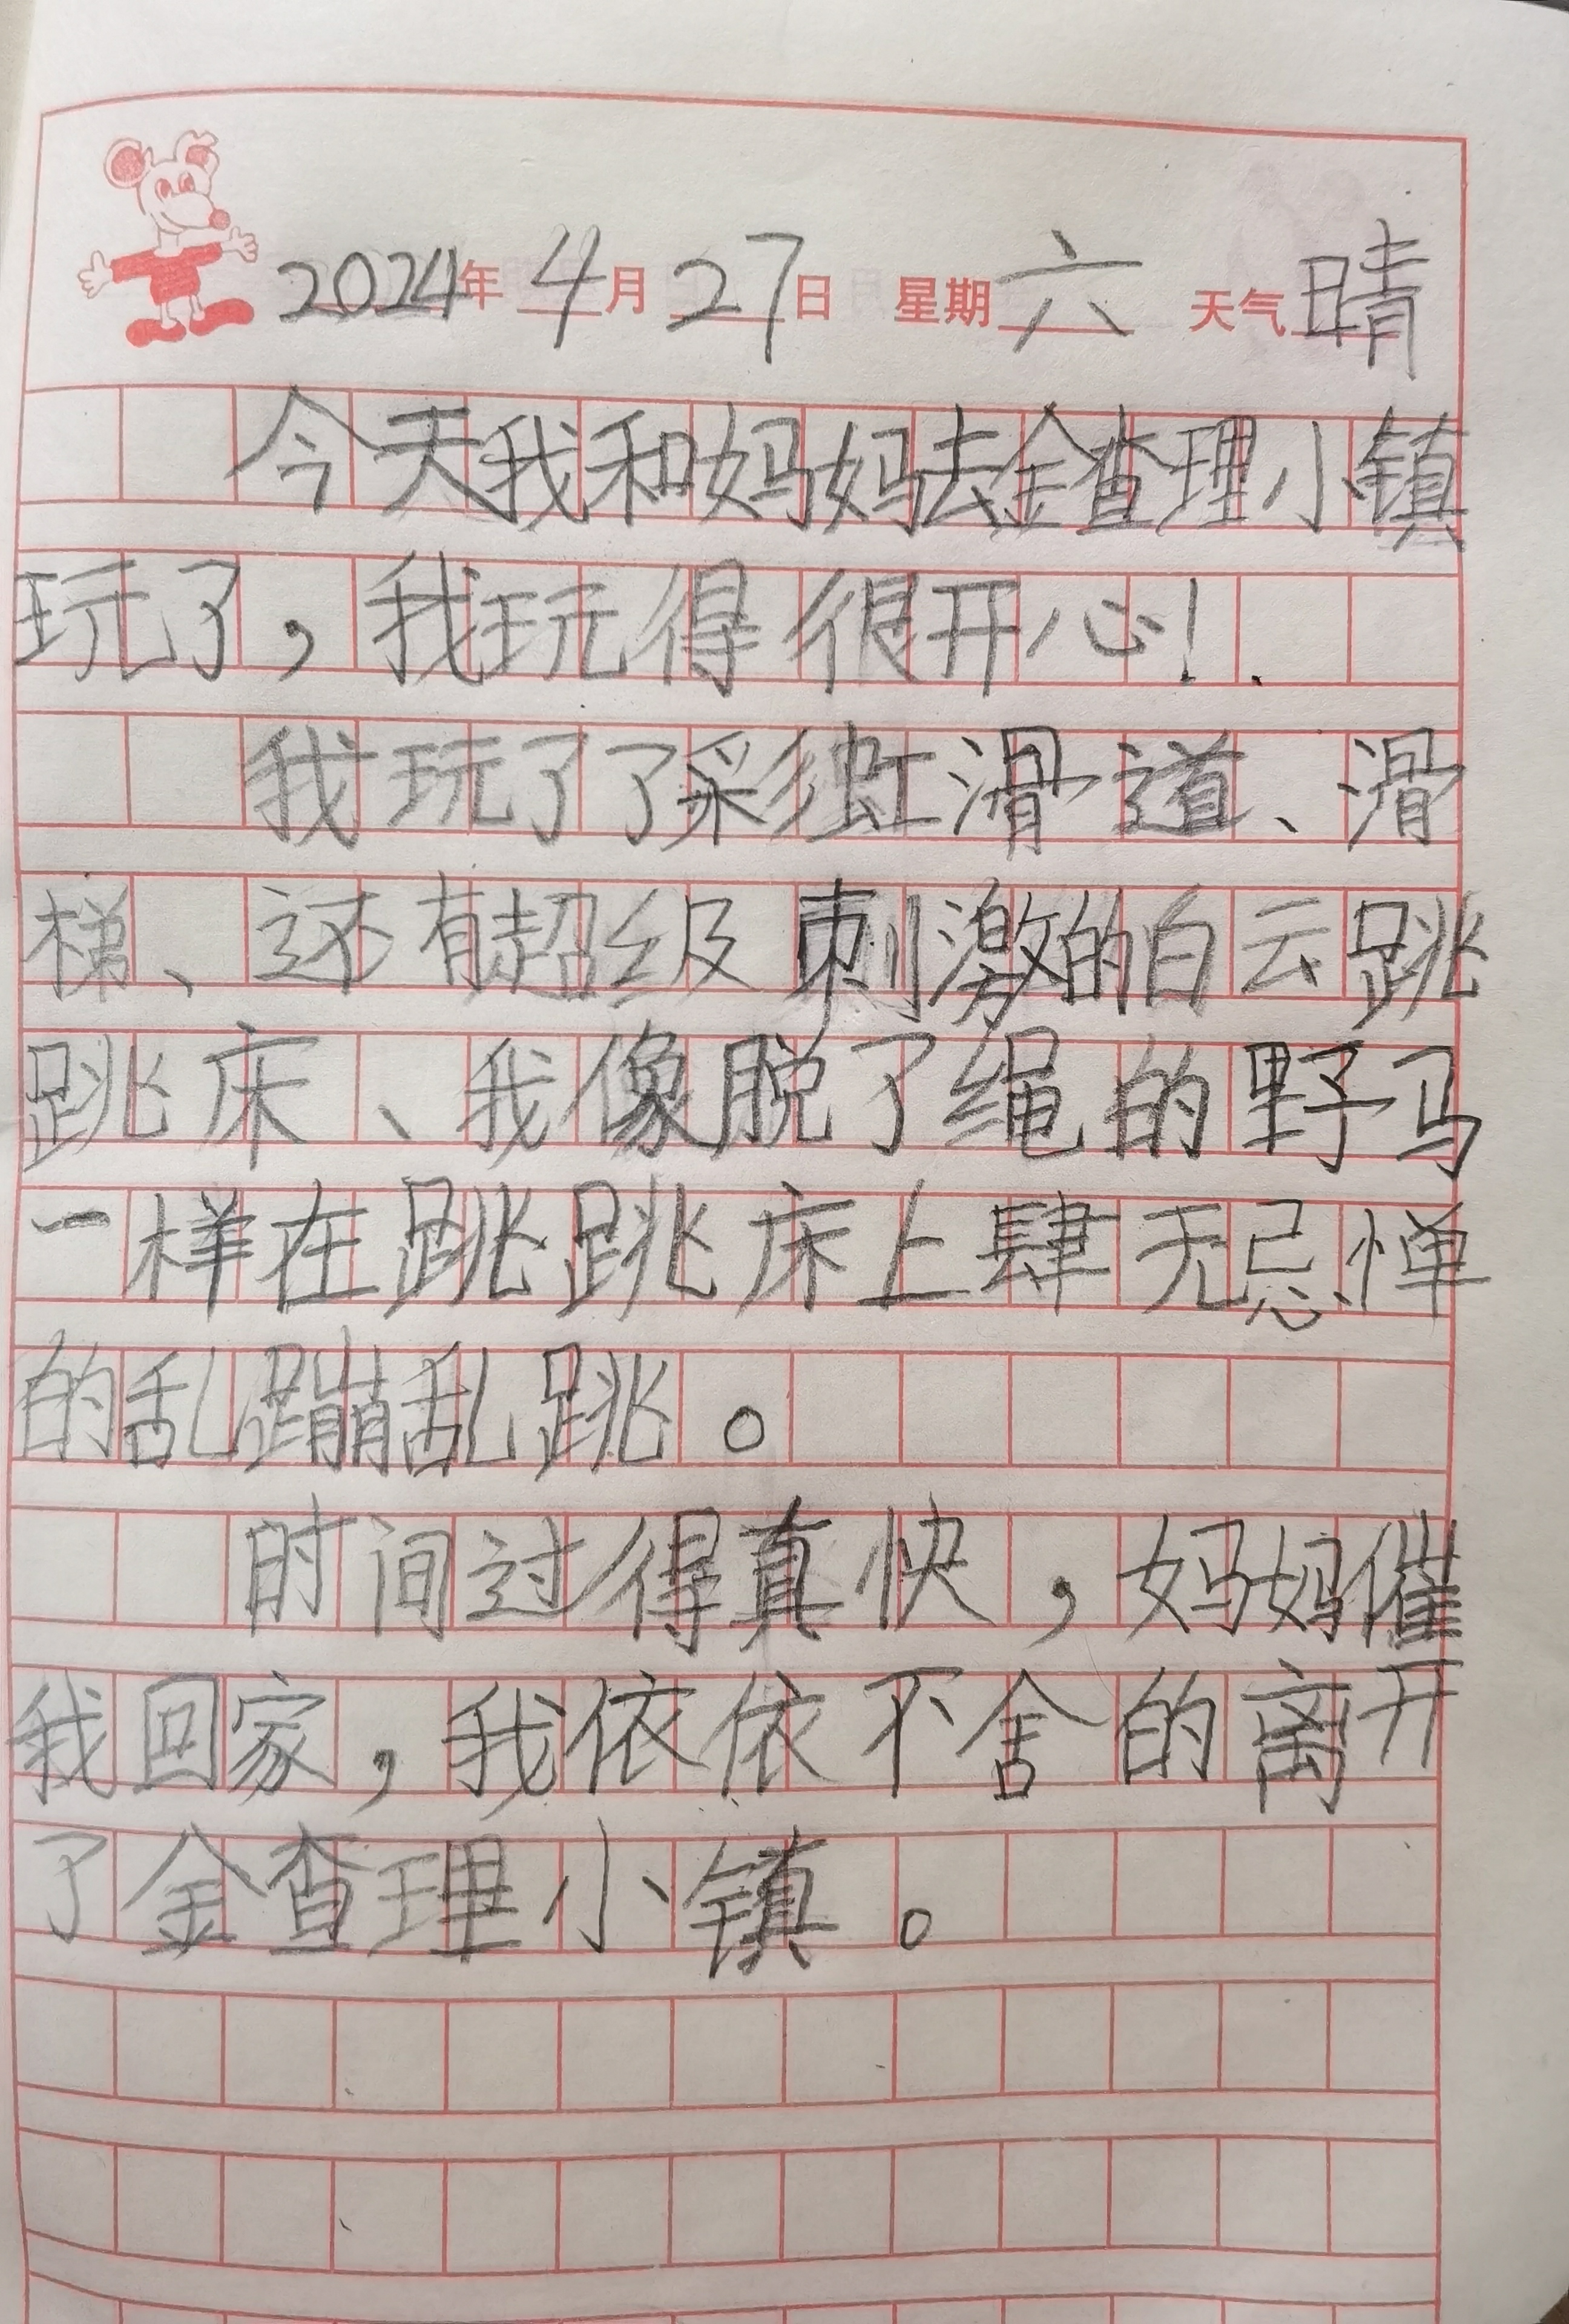 2024年4月27日 星期六 天气晴
今天我和妈妈去金查理小镇
玩了，我玩得很开心！
我玩了了彩虹滑道、滑
梯、还有超级刺激的白云跳
跳床、我像脱了绳的野马
一样在跳跳床上肆无忌惮
的乱蹦乱跳。
时间过得真快，妈妈催
我回家，我依依不舍的离开
了金查理小镇。